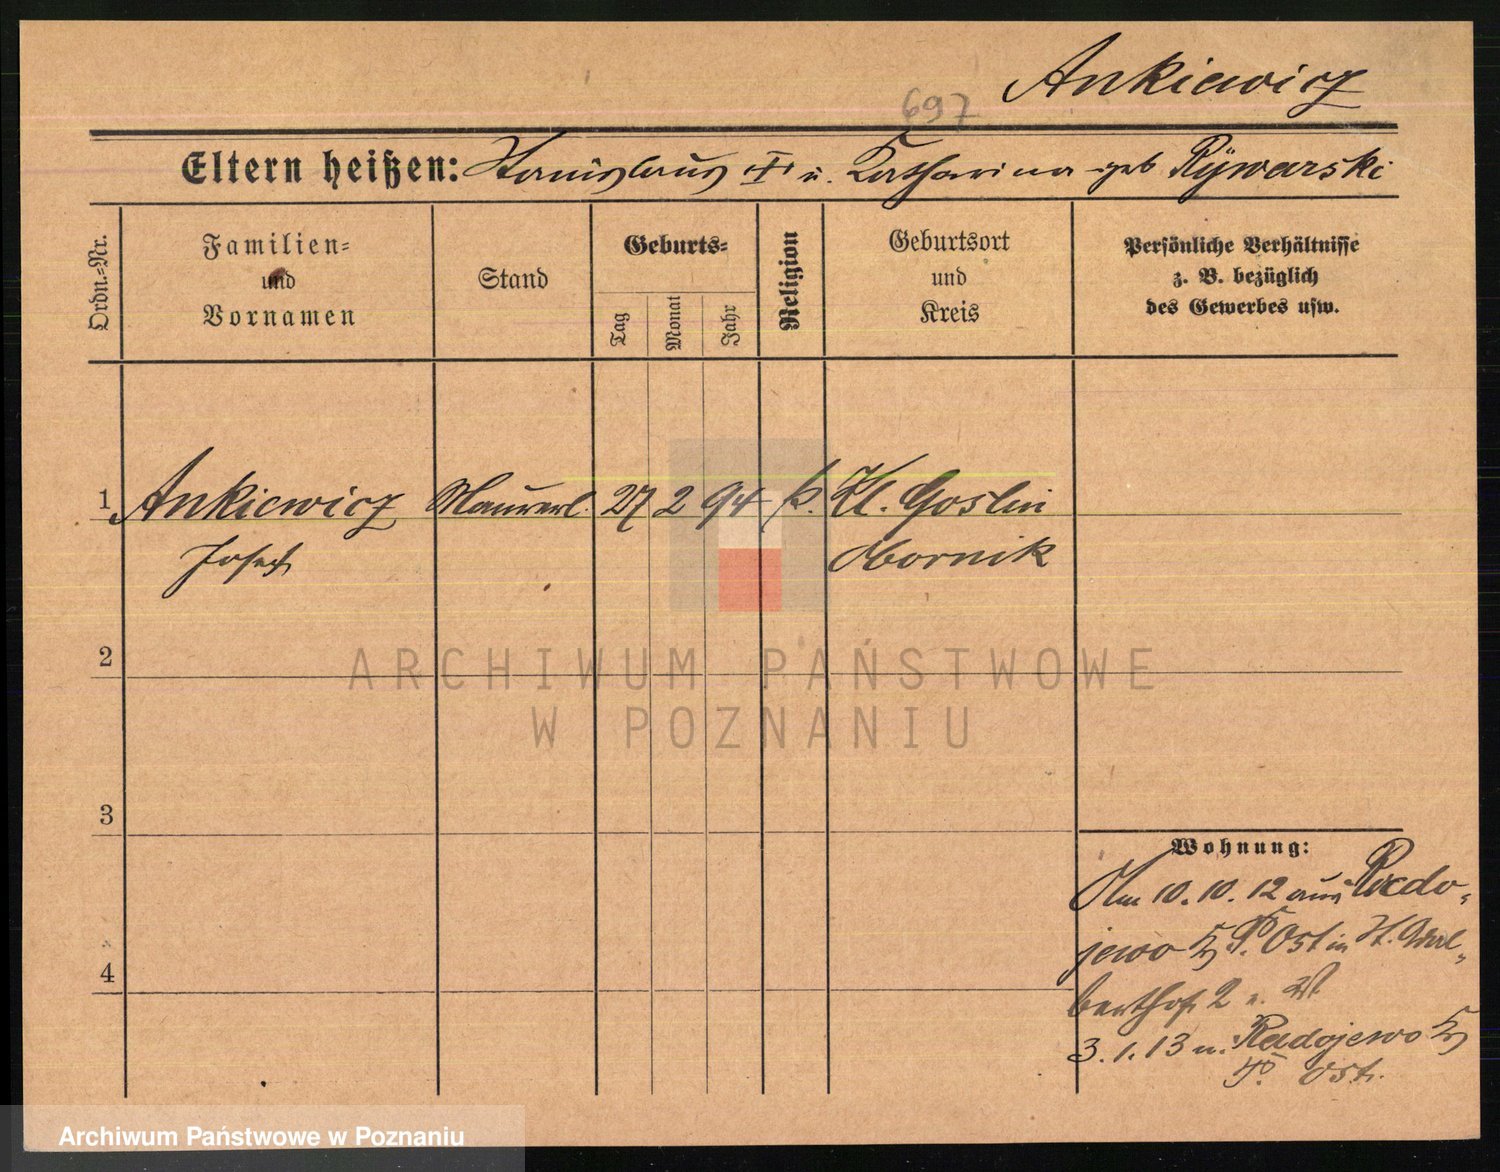 Ankiewicz
697
Eltern heißen: Stanislaus † u. Katharina geb Rÿwarski
Ordn.=Nr.
Familien=
und
Vornamen
Stand
Geburts=
Tag
Monat
Jahr
Religion
Geburtsort
und
Kreis
Persönliche Verhältnisse
z. B. bezüglich
des Gewerbes usw.
1 Ankiewicz Maurerl. 27 2 94 k. Kl. Goslin
Josef Obornik
2
3
4
Wohnung:
Am 10.10.12 aus Radojewo
jewo Kr P. Ost in St. Adal
berthof 2 u.
3.1.13 n. Radojewo Kr
P. Ost.
ARCHIWUM PAŃSTWOWE
W POZNANIU
Archiwum Państwowe w Poznaniu